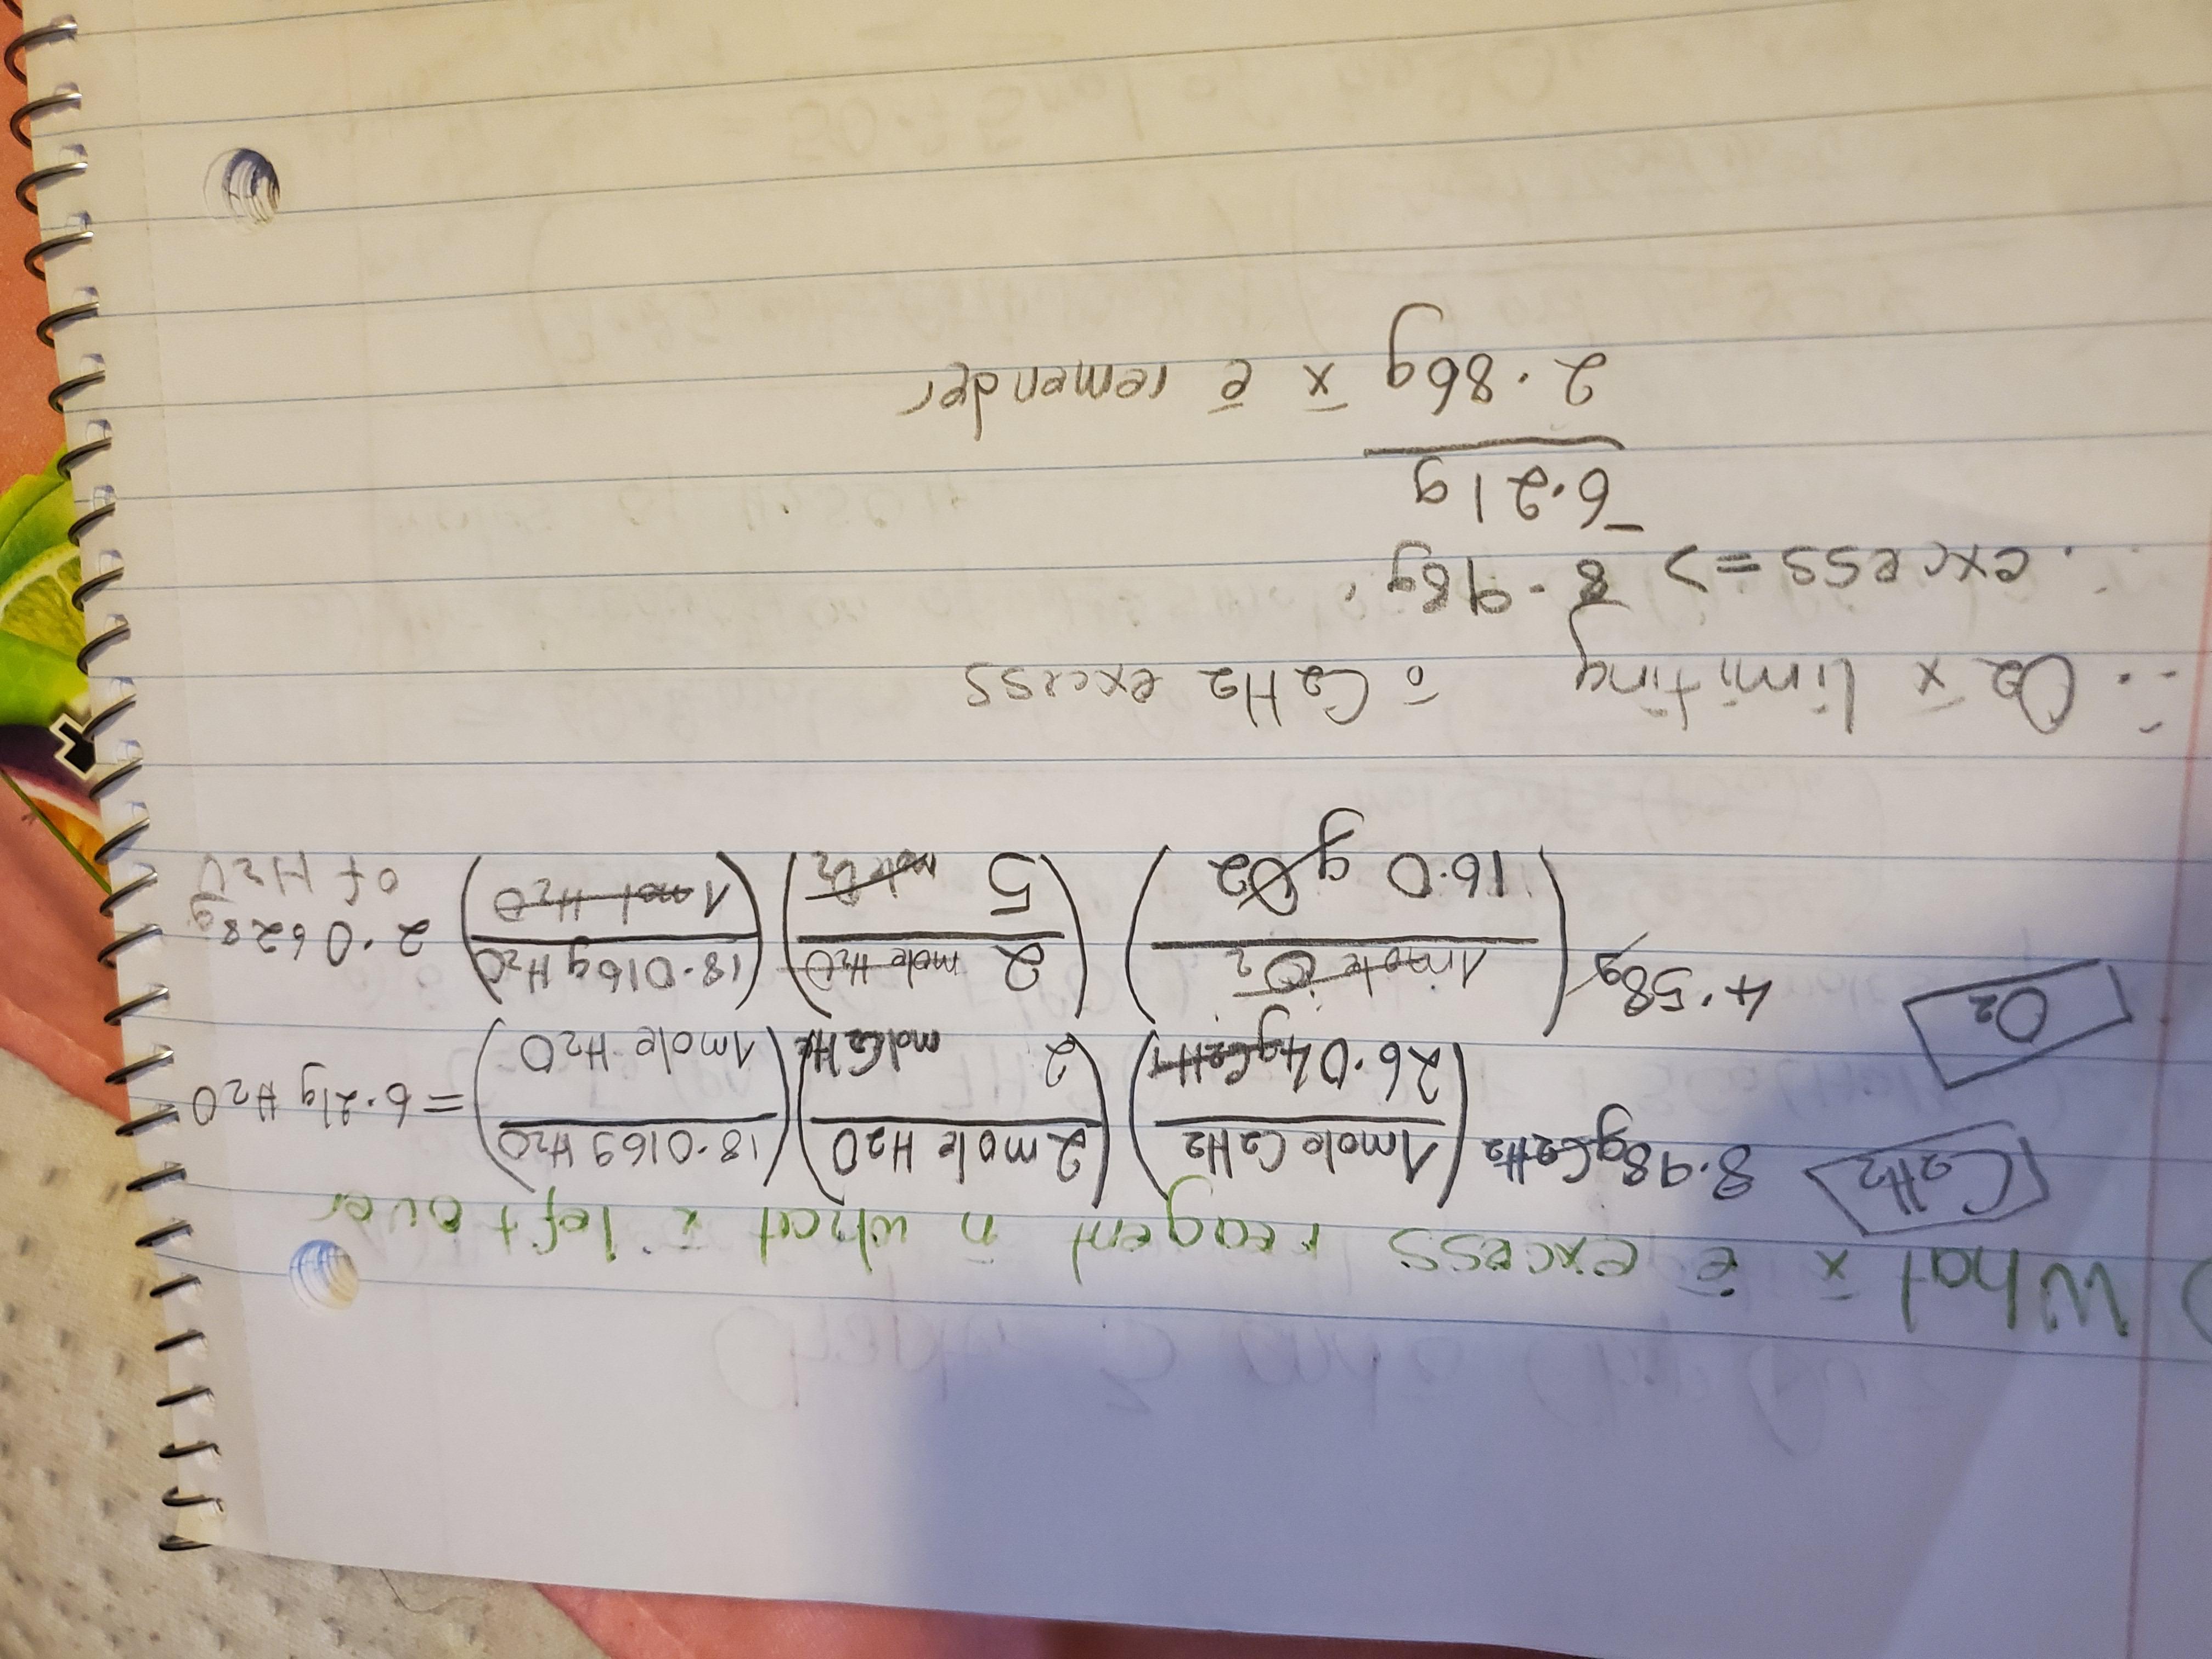 ) What x̄ ē excess reagent n̄ what x̄ left over
C₂H₂ 8.98g C₂H₂ (1mole C₂H₂ / 26.04g C₂H₂) (2mole H₂O / 2 mol C₂H₂) (18.016g H₂O / 1mole H₂O) = 6.21g H₂O
O₂ 4.58g (1mole O₂ / 16.0 g O₂) (2 mole H₂O / 5 mole O₂) (18.016g H₂O / 1mol H₂O) 2.0628g
of H₂O
∴ O₂ x̄ limiting ō C₂H₂ excess
∴ excess => 8.98g
- 6.21g
2.86g x̄ ē remander